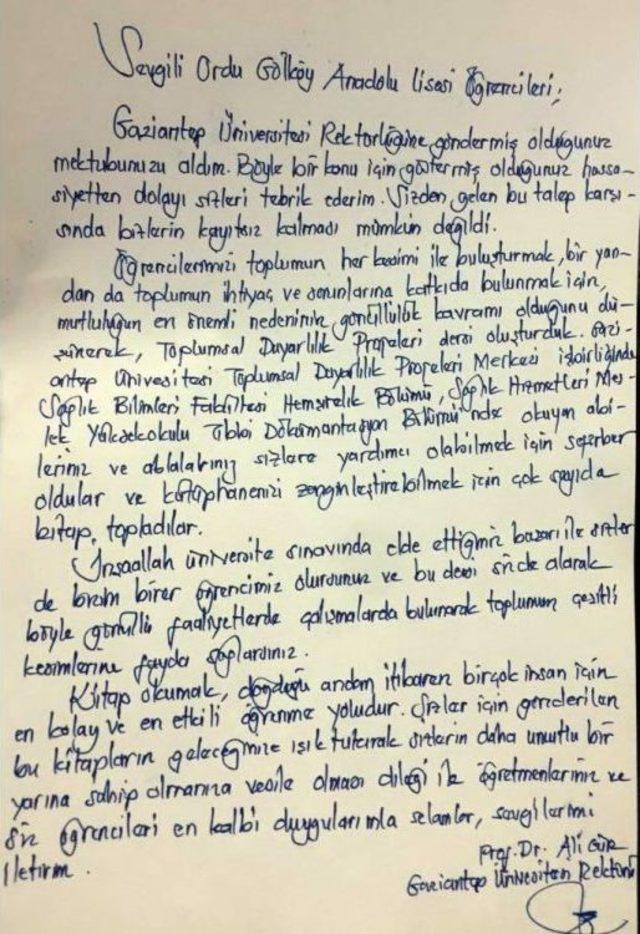 Sevgili Ordu Gölköy Anadolu Lisesi Öğrencileri;
Gaziantep Üniversitesi Rektörlüğüne göndermiş olduğunuz
mektubunuzu aldım. Böyle bir konu için göstermiş olduğunuz hassa-
siyetten dolayı sizleri tebrik ederim. Sizden gelen bu talep karşı-
sında bizlerin kayıtsız kalması mümkün değildi.
Öğrencilerimizi toplumun her kesimi ile buluşturmak, bir yan-
dan da toplumun ihtiyaç ve sorunlarına katkıda bulunmak için,
mutluluğun en önemli nedeninin gönüllülük kavramı olduğunu dü-
şünerek, Toplumsal Duyarlılık Projeleri dersi oluşturduk. Gazi-
antep Üniversitesi Toplumsal Duyarlılık Projeleri Merkezi işbirliğinde
Sağlık Bilimleri Fakültesi Hemşirelik Bölümü, Sağlık Hizmetleri Mes-
lek Yüksekokulu Tıbbi Dökümantasyon Bölümü'nde okuyan abi-
leriniz ve ablalarınız sizlere yardımcı olabilmek için seferber
oldular ve kütüphanenizi zenginleştirebilmek için çok sayıda
kitap topladılar.
İnşaallah üniversite sınavında elde ettiğiniz başarı ile sizler
de bizim birer öğrencimiz olursunuz ve bu dersi sizde alarak
böyle gönüllü faaliyetlerde çalışmalarda bulunarak toplumun çeşitli
kesimlerine fayda sağlarsınız.
Kitap okumak, doğduğu andan itibaren birçok insan için
en kolay ve en etkili öğrenme yoludur. Sizler için gönderilen
bu kitapların geleceğinize ışık tutarak sizlerin daha umutlu bir
yarına sahip olmanıza vesile olması dileği ile öğretmenleriniz ve
siz öğrencileri en kalbi duygularımla selamlar, sevgilerimi
iletirim.
Prof. Dr. Ali Gür
Gaziantep Üniversitesi Rektörü